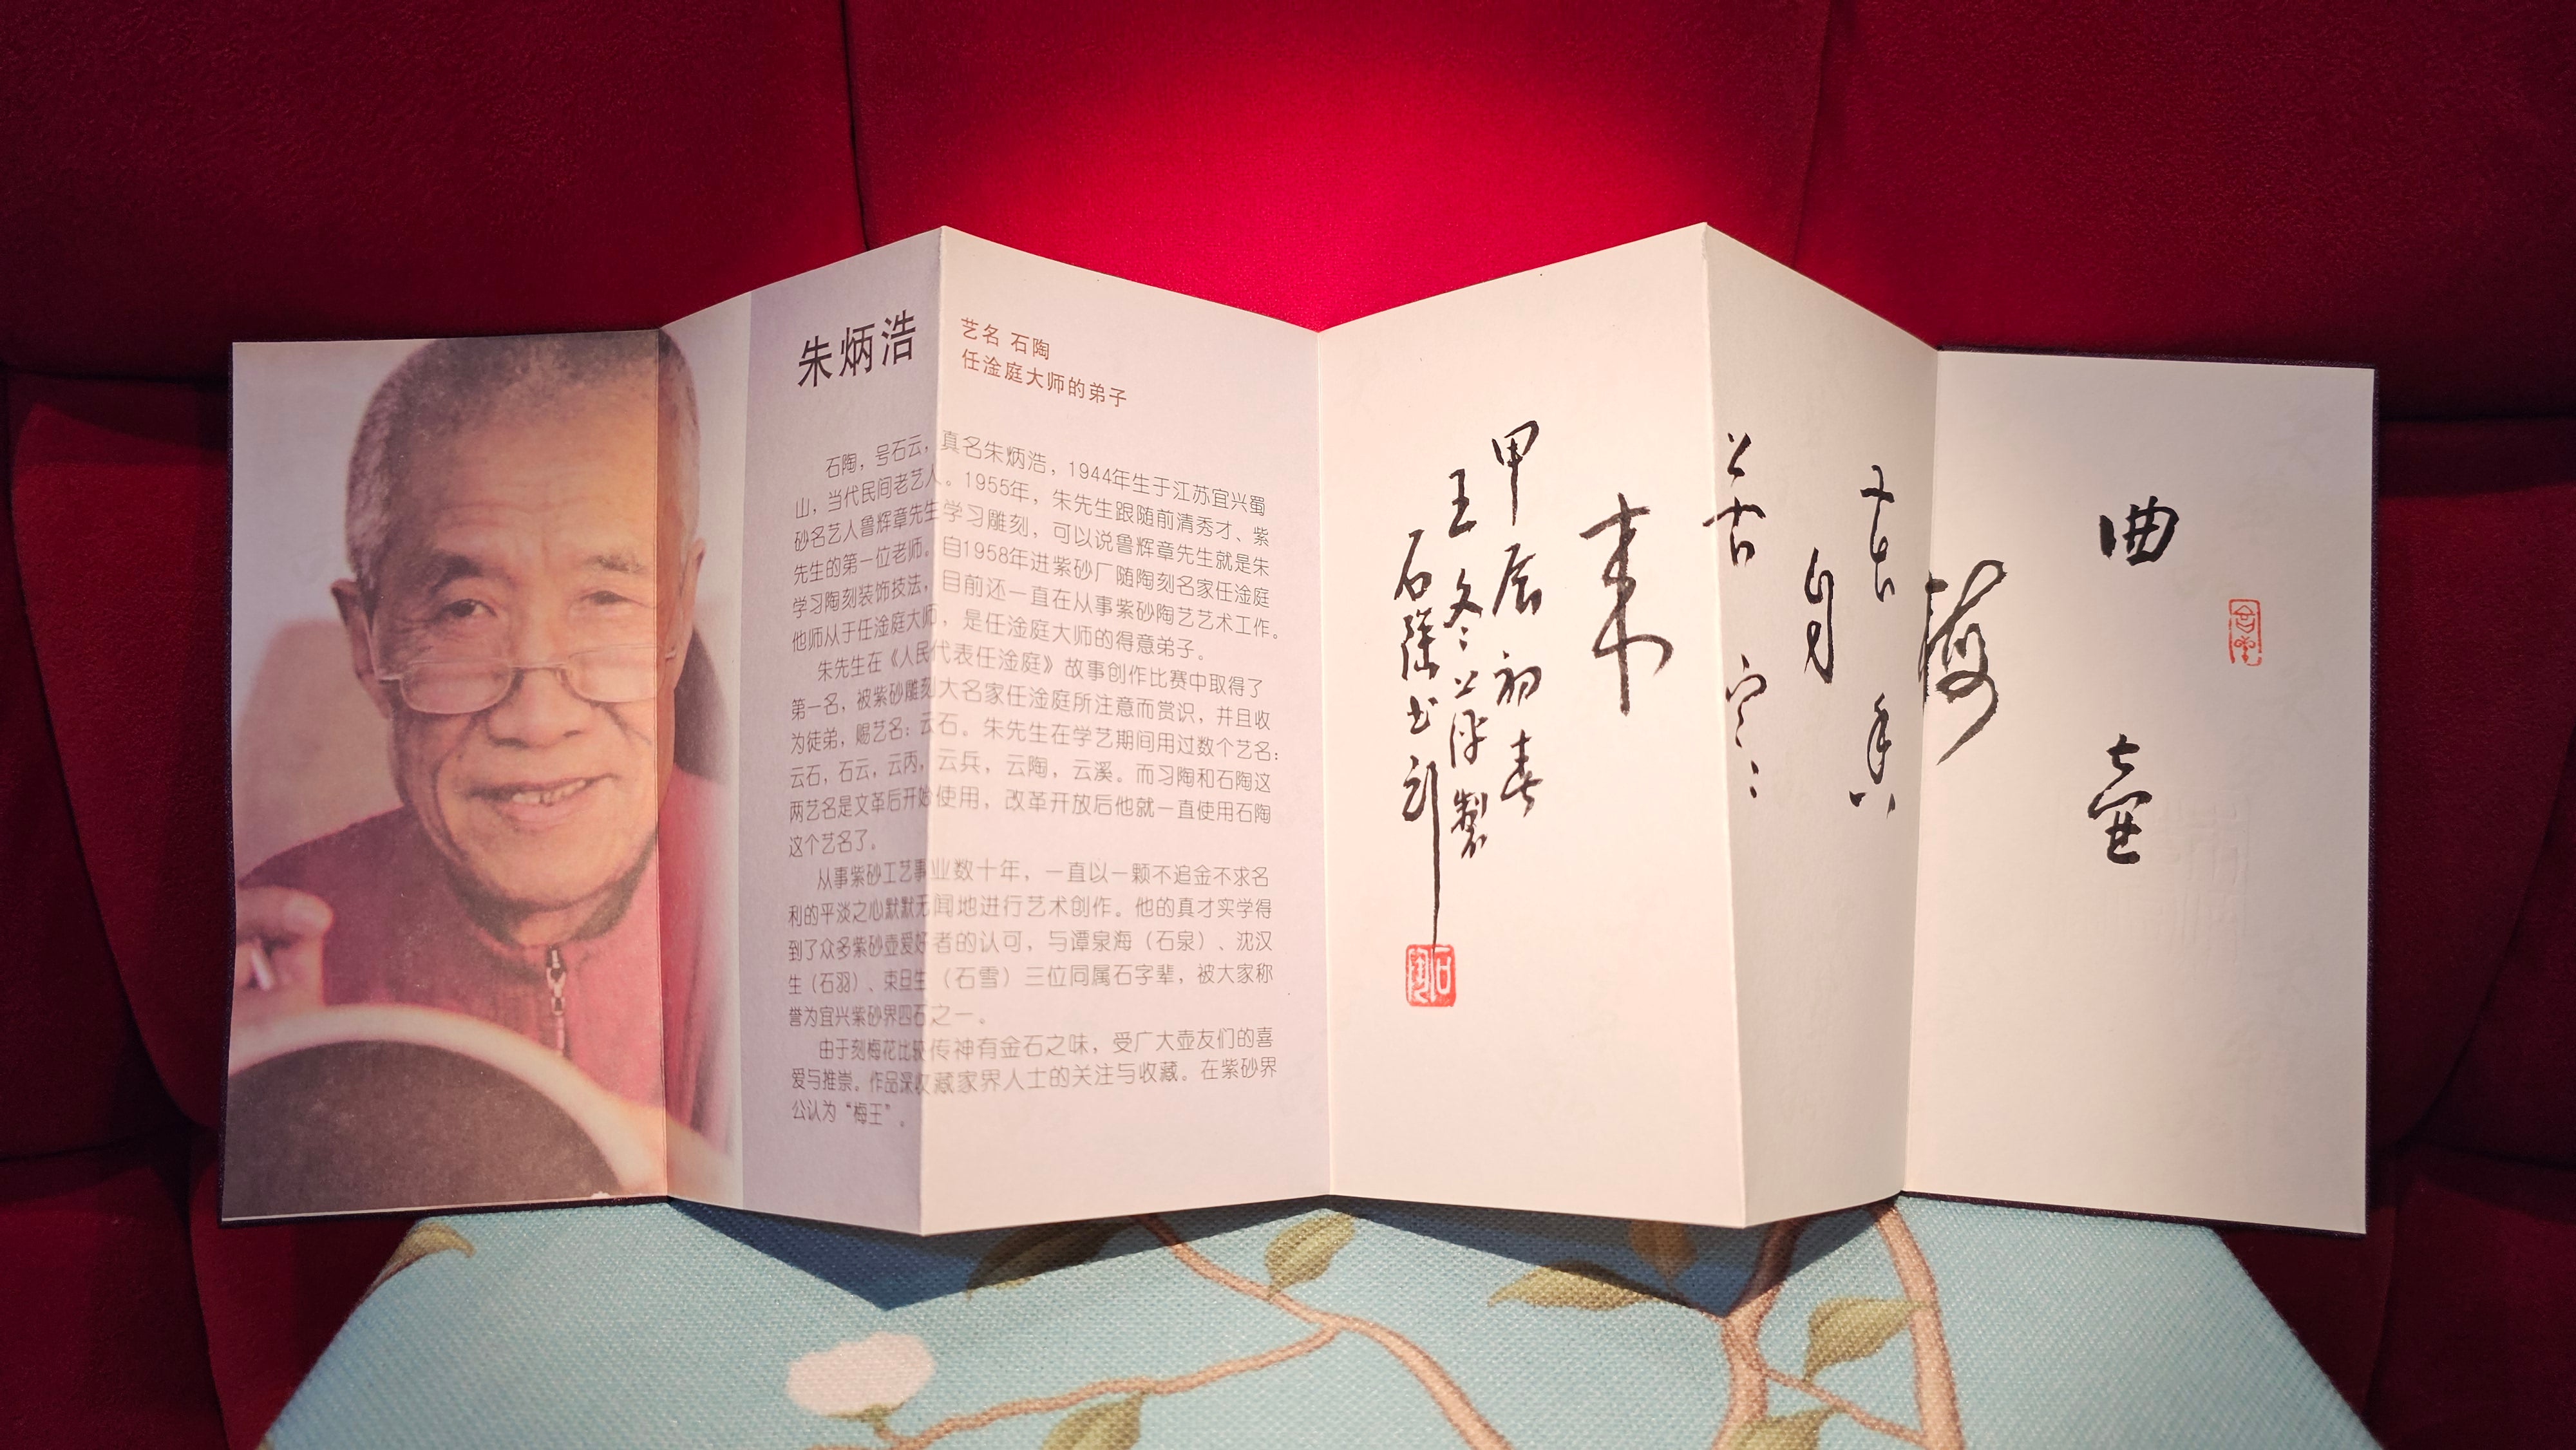 朱炳浩
艺名 石陶
任淦庭大师的弟子
石陶，号石云，真名朱炳浩，1944年生于江苏宜兴蜀
山，当代民间老艺人。1955年，朱先生跟随前清秀才、紫
砂名艺人鲁辉章先生学习雕刻，可以说鲁辉章先生就是朱
先生的第一位老师。自1958年进紫砂厂随陶刻名家任淦庭
学习陶刻装饰技法，目前还一直在从事紫砂陶艺艺术工作。
他师从于任淦庭大师，是任淦庭大师的得意弟子。
朱先生在《人民代表任淦庭》故事创作比赛中取得了
第一名，被紫砂雕刻大名家任淦庭所注意而赏识，并且收
为徒弟，赐艺名：云石。朱先生在学艺期间用过数个艺名：
云石，石云，云丙，云兵，云陶，云溪。而习陶和石陶这
两艺名是文革后开始使用，改革开放后他就一直使用石陶
这个艺名了。
从事紫砂工艺事业数十年，一直以一颗不追金不求名
利的平淡之心默默无闻地进行艺术创作。他的真才实学得
到了众多紫砂壶爱好者的认可，与谭泉海（石泉）、沈汉
生（石羽）、束旦生（石雪）三位同属石字辈，被大家称
誉为宜兴紫砂界四石之一。
由于刻梅花比较传神有金石之味，受广大壶友们的喜
爱与推崇。作品深收藏家界人士的关注与收藏。在紫砂界
公认为“梅王”。
曲壶
梅
花香
自
苦寒
来
甲辰初春
王冬萍製
石陶书刻
石陶